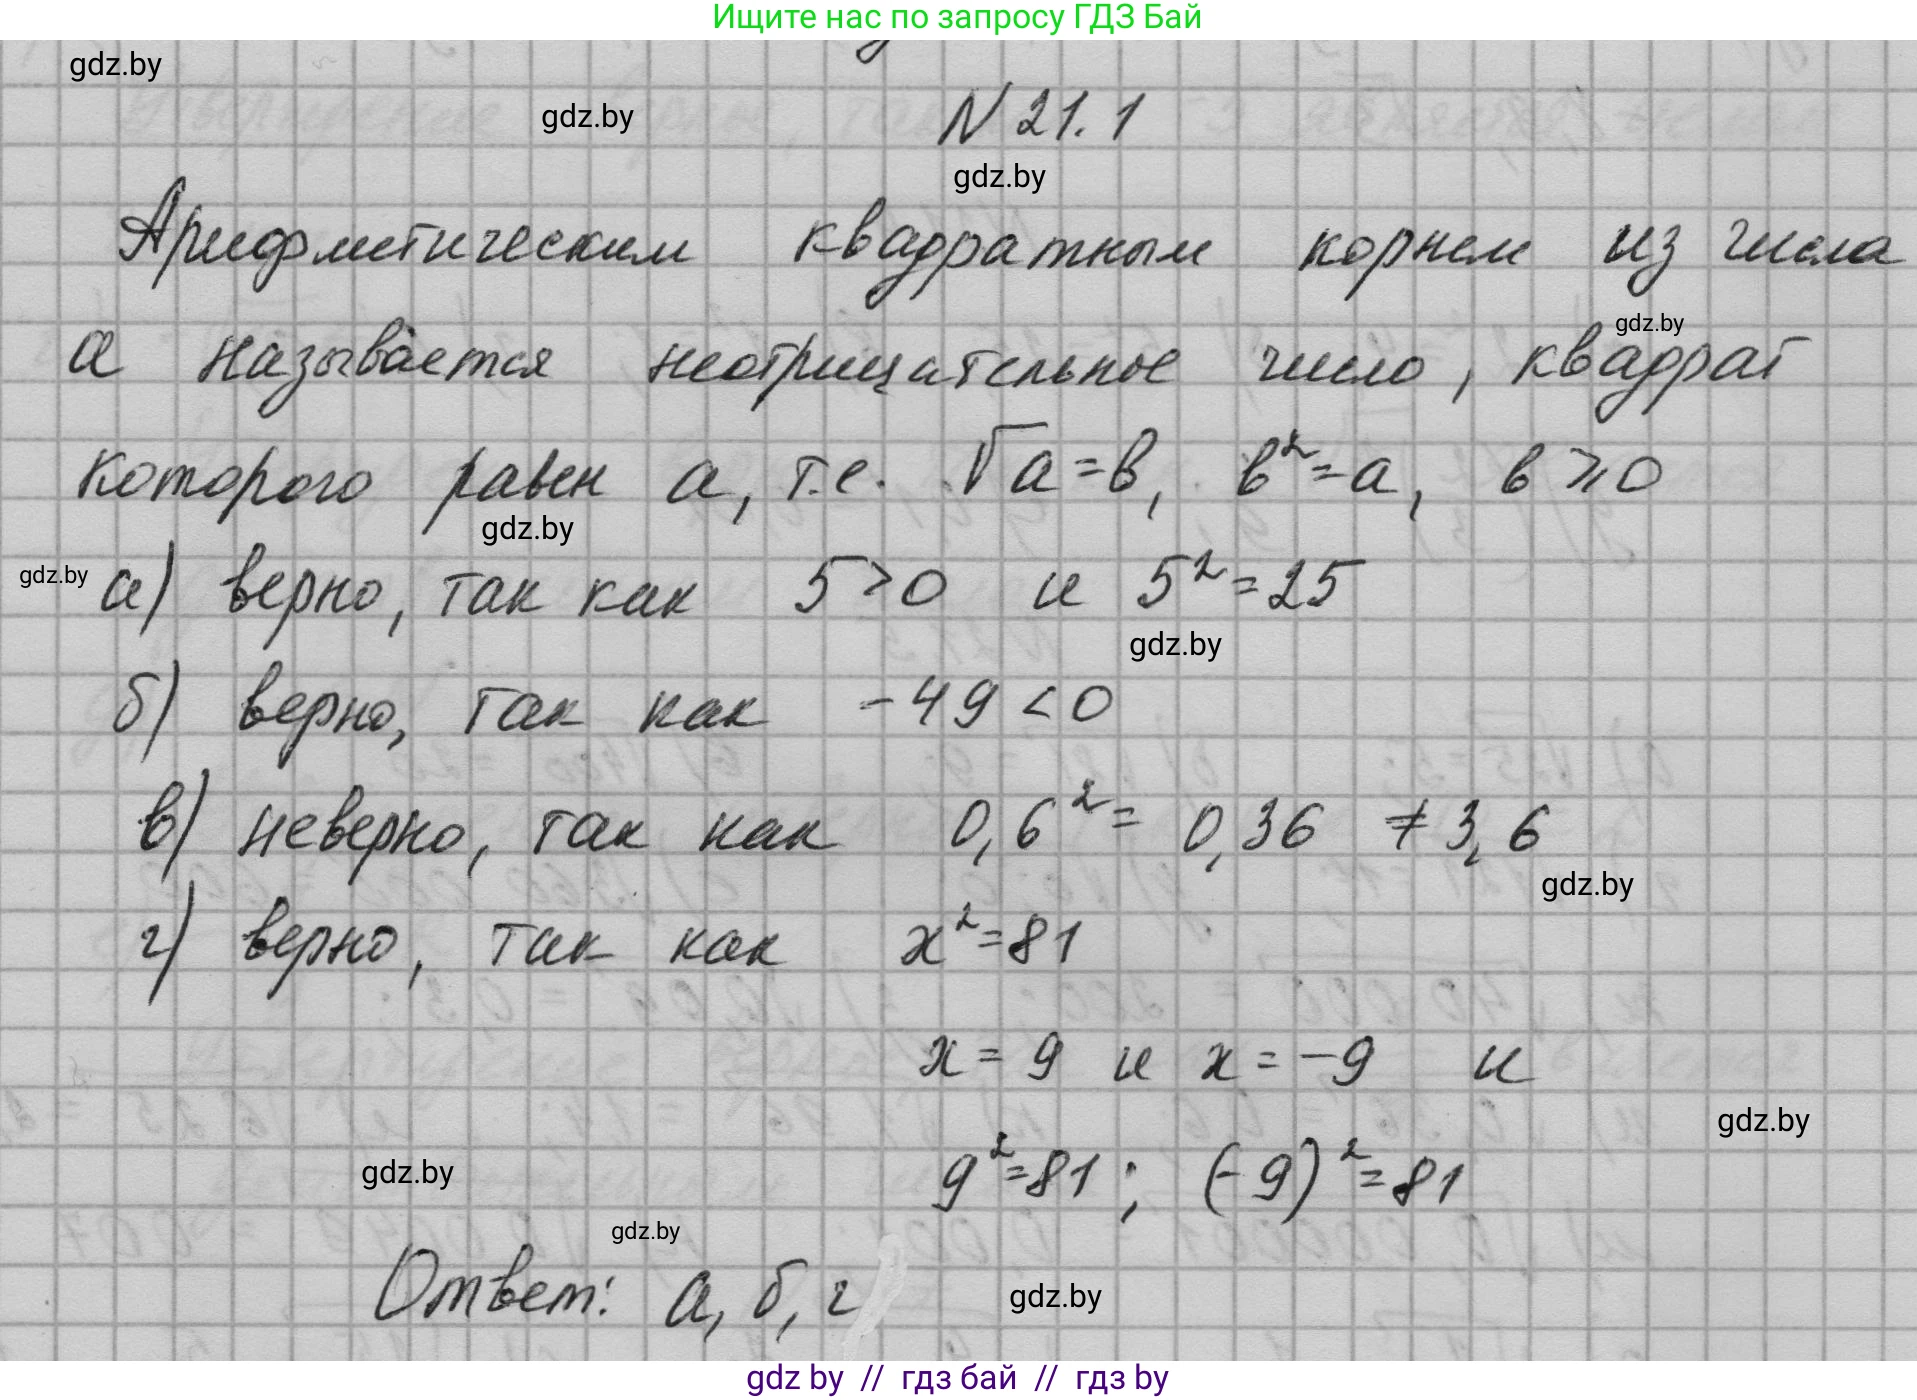 Ищите нас по запросу ГДЗ Бай
gdz.by
gdz.by
N 21.1
gdz.by
Арифметическим квадратным корнем из числа
gdz.by
а называется неотрицательное число, квадрат
которого равен а, т.е. √a = в, в² = а, в ⩾ 0
gdz.by
gdz.by
а) верно, так как 5 > 0 и 5² = 25
gdz.by
б) верно, так как -49 < 0
в) неверно, так как 0,6² = 0,36 ≠ 3,6
gdz.by
г) верно, так как x² = 81
x = 9 и x = -9 и
gdz.by
9² = 81; (-9)² = 81
gdz.by
gdz.by
Ответ: а, б, г
gdz.by
gdz by // гдз бай // гдз by